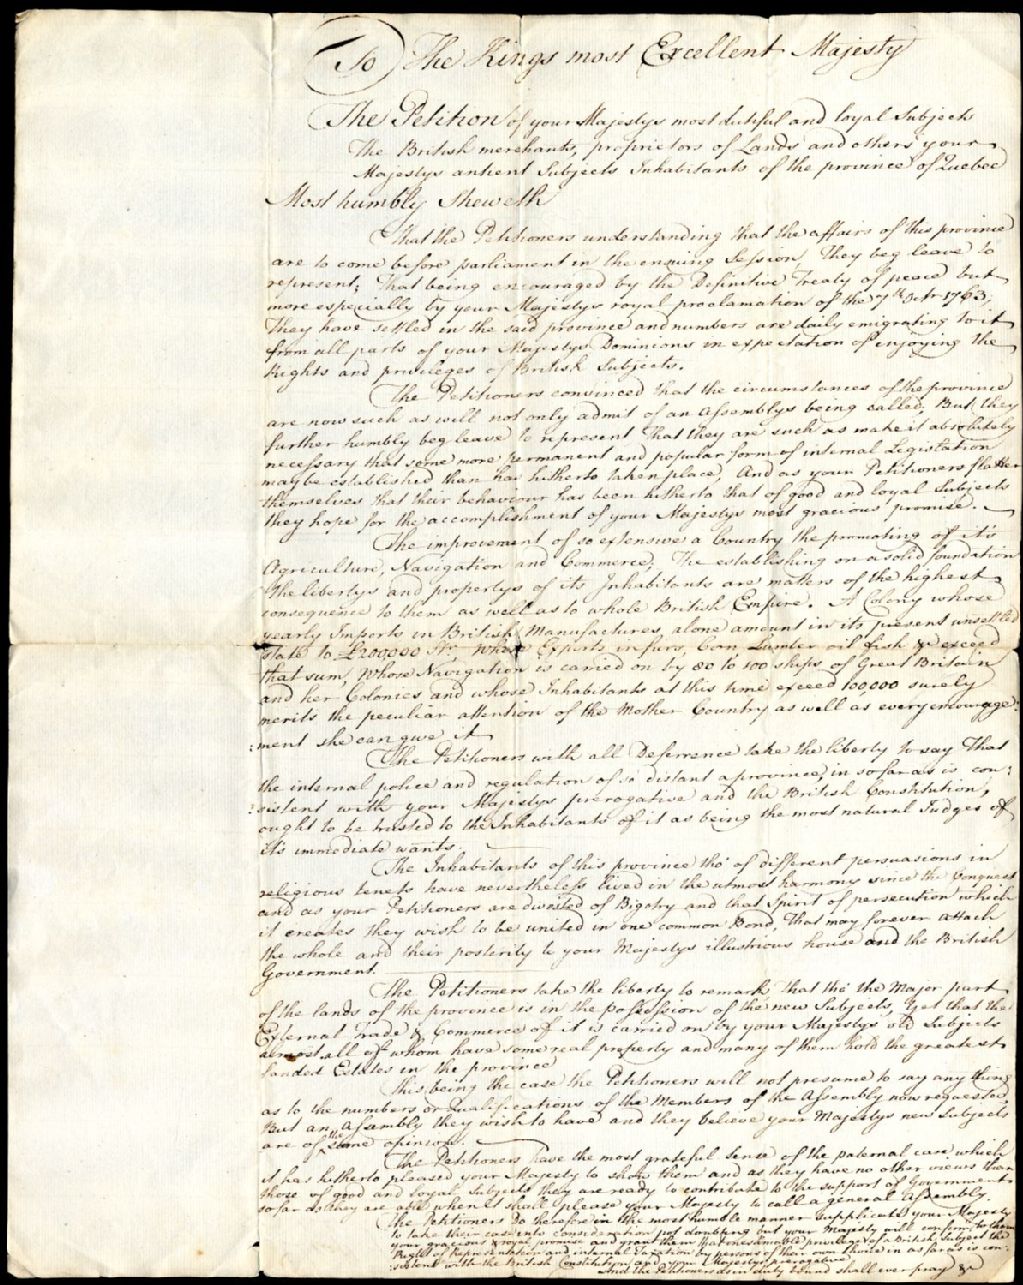 To The Kings most Excellent Majesty
The Petition of your Majestys most dutiful and loyal Subjects
The British merchants, proprietors of Lands and others your
Majestys antient Subjects Inhabitants of the province of Quebec
Most humbly Sheweth
That the Petitioners understanding that the affairs of this province
are to come before parliament in the ensuing Session, They beg leave to
represent; That being encouraged by the Definitive Treaty of peace but
more especially by your Majestys royal proclamation of the 7th Octr 1763;
They have settled in the said province and numbers are daily emigrating to it
from all parts of your Majestys Dominions in expectation of enjoying the
Rights and privileges of British Subjects.
The Petitioners convinced that the circumstances of the province
are now such as will not only admit of an Assemblys being called, But they
further humbly beg leave to represent That they are such as make it absolutely
necessary that some more permanent and popular form of internal Legislation
may be established than has hitherto taken place, And as your Petitioners flatter
themselves that their behaviour has been hitherto that of good and loyal Subjects
they hope for the accomplishment of your Majestys most gracious promise.
The improvement of so extensive a Country the promoting of it's
Agriculture, Navigation and Commerce; The establishing on a solid foundation
the libertys and propertys of its Inhabitants are matters of the highest
consequence to them as well as to whole British Empire. A Colony whose
yearly Imports in British Manufactures, alone amount in its present unsettled
state to £200,000 Str. whose Exports in furs, Corn Lumber oil fish &c exceed
that sum, Whose Navigation is carried on by 80 to 100 ships of Great Britain
and her Colonies and whose Inhabitants at this time exceed 100,000 surely
merits the peculiar attention of the Mother Country as well as every encourage
:ment she can give it
The Petitioners with all Deferrence take the liberty to say That
the internal police and regulation of so distant a province, in so far as is con:
:sistent with your Majestys prerogative and the British Constitution,
ought to be trusted to the Inhabitants of it as being the most natural Judges of
it's immediate wants.
The Inhabitants of this province tho' of different persuasions in
religious tenets have nevertheless lived in the utmost harmony since the Conquest
and as your Petitioners are divested of Bigotry and that Spirit of persecution which
it creates they wish to be united in one common Bond, That may forever attach
the whole and their posterity to your Majestys illustrious house and the British
Government.
The Petitioners take the liberty to remark That tho' the Major part
of the lands of the province is in the possession of the new Subjects, Yet that the
External Trade & Commerce of it is carried on by your Majestys old Subjects
almost all of whom have some real property and many of them hold the greatest
landed Estates in the province
This being the case the Petitioners will not presume to say any thing
as to the numbers or Qualifications of the Members of the Assembly now requested
But an Assembly they wish to have and they believe your Majestys new Subjects
are of the same opinion.
The Petitioners have the most grateful sense of the paternal care which
it has hitherto pleased your Majesty to show them and as they have no other views than
those of good and loyal Subjects they are ready to contribute to the support of Government
so far as they are able when it shall please your Majesty to call a general Assembly.
The Petitioners Do therefore in the most humble manner supplicate your Majesty
to take their case into consideration not doubting but your Majesty will conform to them
your gracious & royal promise and grant them that inestimable privilege of a British Subject the
Right of Representation and internal Taxation by persons of their own choice in as far as is con:
:sistent with the British Constitution and your Majestys prerogative
And the Petitioners as in duty bound shall ever pray &c